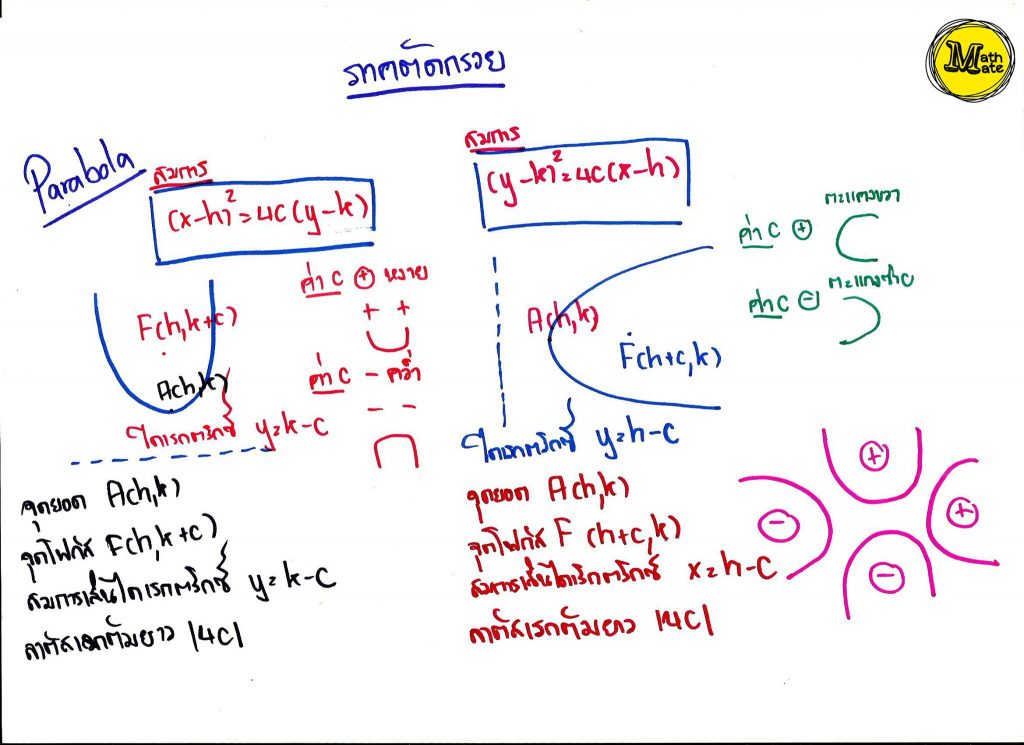 ภาคตัดกรวย
Math Mate
Parabola
สมการ
(x-h)² = 4c(y-k)
ค่า c ⊕ หงาย
+ +
ค่า c - คว่ำ
- -
F(h,k+c)
A(h,k)
ไดเรกตริกซ์ y=k-c
จุดยอด A(h,k)
จุดโฟกัส F(h,k+c)
สมการเส้นไดเรกตริกซ์ y=k-c
ลาตัสเรกตัมยาว |4c|
สมการ
(y-k)² = 4c(x-h)
ค่า c ⊕ ตะแคงขวา
ค่า c ⊖ ตะแคงซ้าย
A(h,k)
F(h+c,k)
ไดเรกตริกซ์ y=h-c
จุดยอด A(h,k)
จุดโฟกัส F(h+c,k)
สมการเส้นไดเรกตริกซ์ x=h-c
ลาตัสเรกตัมยาว |4c|
+
- +
-